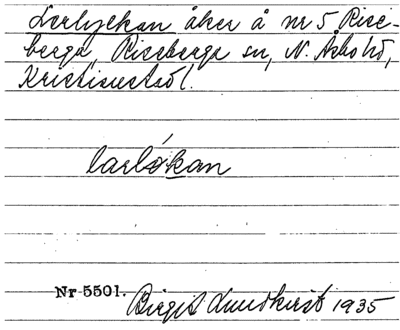 Lerlyckan åker å nr 5 Rise-
berga, Riseberga sn, N. Åsbo hd,
Kristianst. l.
larlǿkan
Nr 5501. Birgit Lundkvist 1935